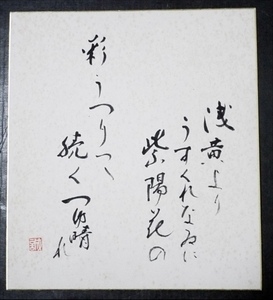 浅黄より
うすくれなゐに
紫陽花の
彩うつりつゝ
続く